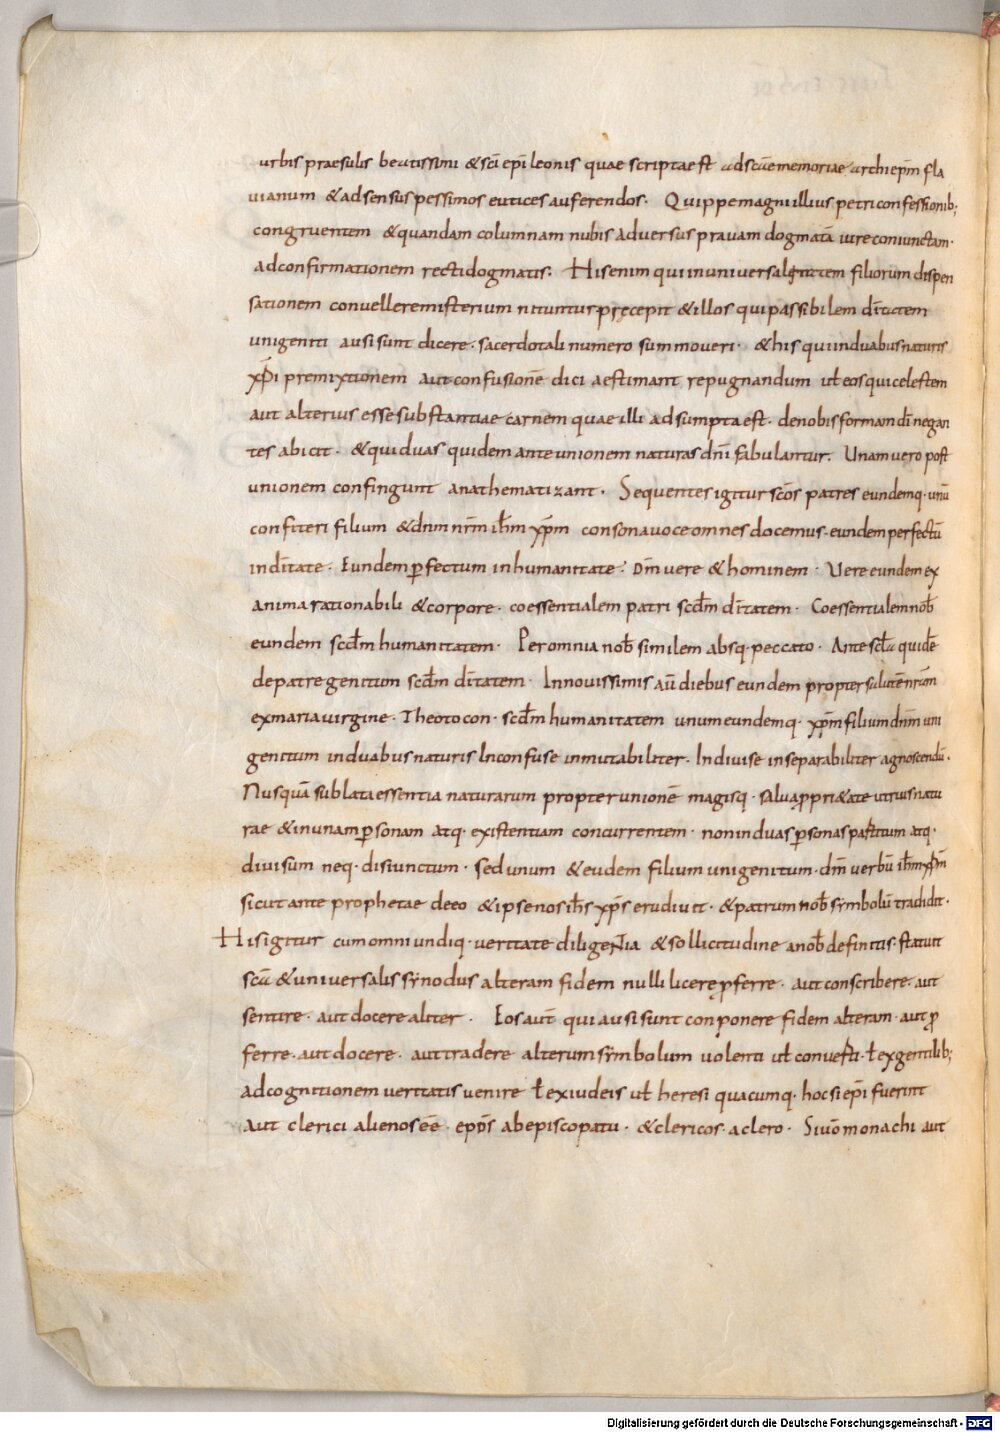 urbis praesulis beatissimi & sci epi leonis quae scriptae st ad scae memoriae archiepm fla
uianum & ad sensus pessimos eutices auferendos. Quippe magni illius petri confessionib;
congruentem & quandam columnam nubis aduersus prauam dogmatā iure coniunctam.
ad confirmationem recti dogmatis. Hi senim qui in uniuersal filiorum dispen
sationem conuellere misterium nituntur pręcepit & illos qui passibilem ditatem
unigeniti ausi sunt dicere. sacerdotali numero summoueri. & his qui in duabus naturis
xpi premixtionem aut confusionē dici aestimant repugnandum ut eos qui celestem
aut alterius esse substantiae carnem quae illi adsumpta est. de nobis formam di negan
tes abicit. & qui duas quidem ante unionem naturas dni fabulantur. Unam uero post
unionem confingunt anathematizant. Sequentes igitur scos patres eundemq. unū
confiteri filium & dnm nrm ihm xpm consona uoce omnes docemus. eundem perfectū
in ditate. Eundem pfectum in humanitate. Dm uere & hominem. Uere eundem ex
anima rationabili & corpore. coessentialem patri scdm ditatem. Coessentialem nob
eundem scdm humanitatem. Per omnia nob similem absq. peccato. Ante scla quidē
de patre genitum scdm ditatem. In nouissimis aū diebus eundem propter salutē nrām
ex maria uirgine. Theotocon. scdm humanitatem unum eundemq. xpm filium dnm uni
genitum in duabus naturis Inconfuse inmutabiliter. Indiuise inseparabiliter agnoscendū.
Nusquā sublata essentia naturarum propter unionē magisq. salua pprietate utrius natu
rae & in unam psonam atq. existentiam concurrentem. non in duas psonas partitum atq.
diuisum neq. disiunctum. sed unum & eudem filium unigenitum. dm uerbū ihm xpm
sicut ante prophetae de eo & ipse nos ihs xps erudiuit. & patrum nob symbolū tradidit.
His igitur cum omni undiq. ueritate diligeNtia & sollicitudine a nob definitis. statuit
scā & uniuersalis synodus alteram fidem nulli licere pferre. aut conscribere. aut
sentire. aut docere aliter. Eos aut qui ausi sunt conponere fidem alteram. aut p
ferre. aut docere. aut tradere alterum symbolum uolenti ut conuerti. ł ex gentilib;
ad cognitionem ueritatis uenire ł ex iudeis ut heresi quacumq. hoc si epi fuerint
aut clerici alienos eē. epos ab episcopatu. & clericos. a clero. Si uō monachi aut
Digitalisierung gefördert durch die Deutsche Forschungsgemeinschaft - DFG